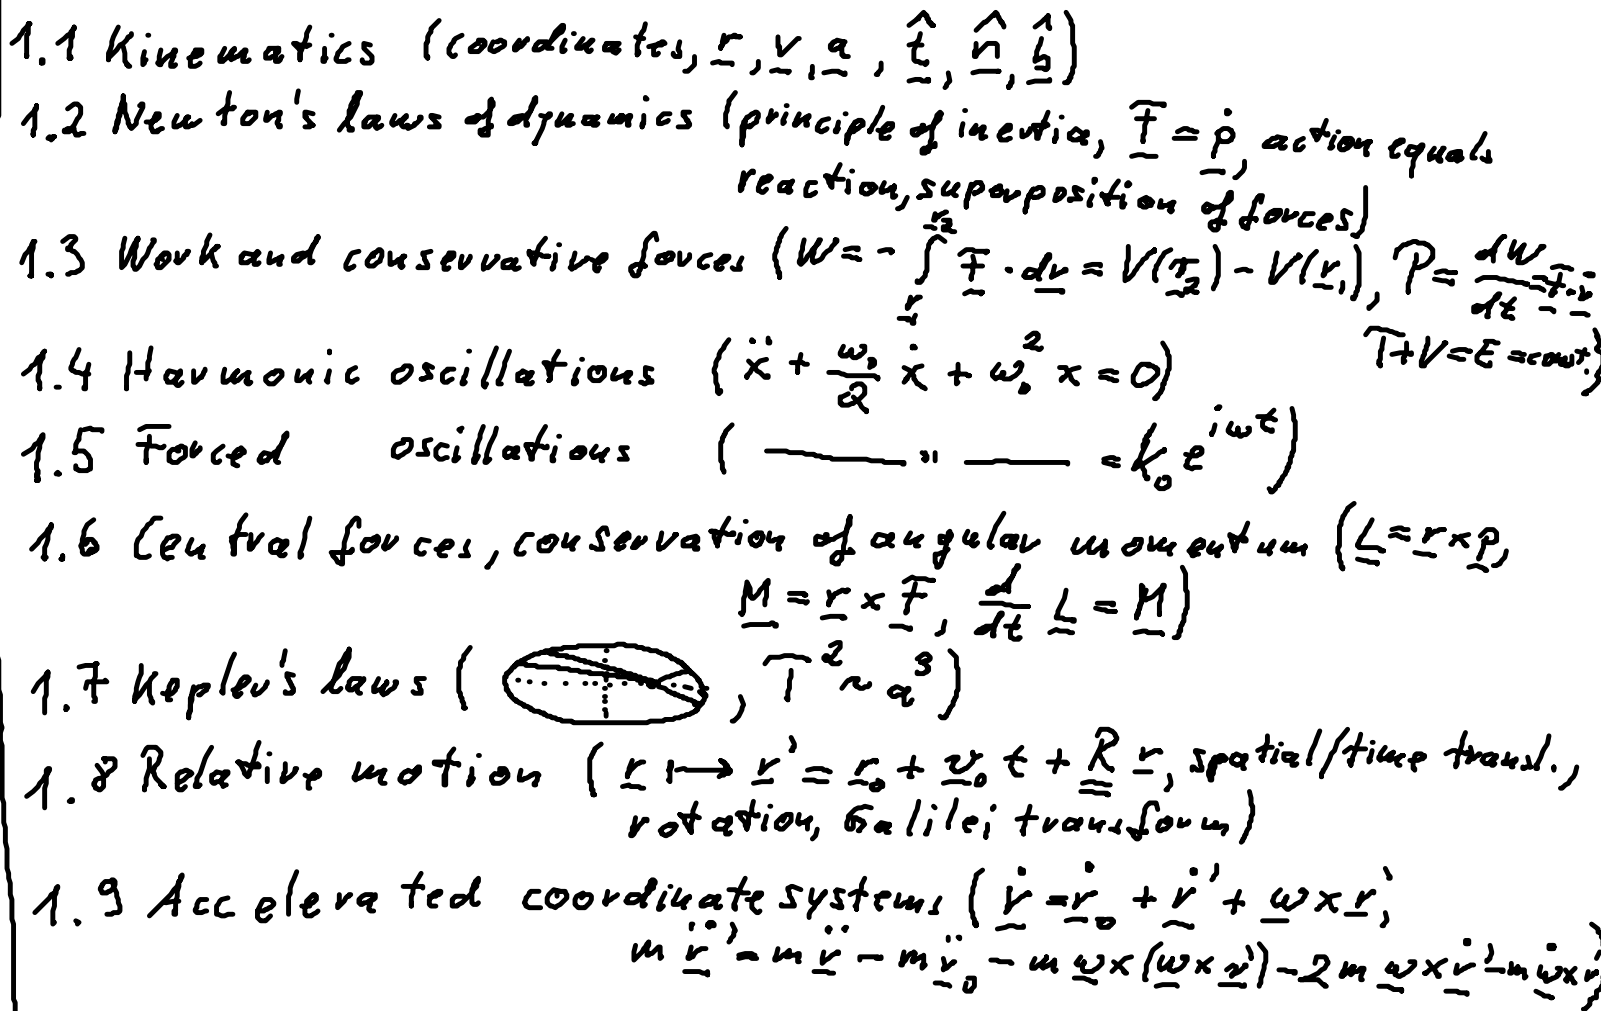 1.1 Kinematics (coordinates, r, v, a, t̂, n̂, b̂)
1.2 Newton's laws of dynamics (principle of inertia, F = ṗ, action equals
reaction, superposition of forces)
1.3 Work and conservative forces (W = - ∫_{r₁}^{r₂} F · dr = V(r₂) - V(r₁), P = dW/dt = F·ṙ
T+V=E=const.)
1.4 Harmonic oscillations (ẍ + ω₀/Q ẋ + ω₀² x = 0)
1.5 Forced oscillations ( —— " —— = K₀ e^{iωt})
1.6 Central forces, conservation of angular momentum (L = r × p,
M = r × F, d/dt L = M)
1.7 Kepler's laws ( , T² ~ a³)
1.8 Relative motion (r ↦ r' = r₀ + v₀ t + R r, spatial/time transl.,
rotation, Galilei transform)
1.9 Accelerated coordinate systems (ṙ = ṙ₀ + ṙ' + ω × r',
m r̈' = m r̈ - m r̈₀ - m ω × (ω × r') - 2m ω × ṙ' - m ω̇ × r')